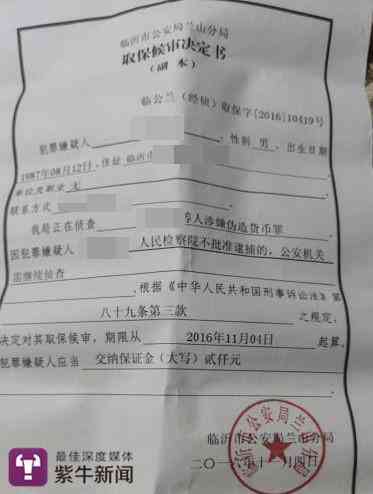 临沂市公安局兰山分局
取保候审决定书
（副本）
临公兰（经侦）取保字[2016]10419号
犯罪嫌疑人 性别 男 ，出生日期
1987年08月12日，住址 临沂市
单位及职业 无
联系方式
我局正在侦查 等人涉嫌伪造货币罪
因犯罪嫌疑人 人民检察院不批准逮捕的，公安机关
需继续侦查
，根据《中华人民共和国刑事诉讼法》第
八十九条第三款 之规定，
决定对其取保候审，期限从 2016年11月04日 起算。
犯罪嫌疑人应当 交纳保证金（大写）贰仟元
临沂市公安局兰山分局
二〇一六年十一月四日
临沂市公安局兰山分局
最佳深度媒体
紫牛新闻